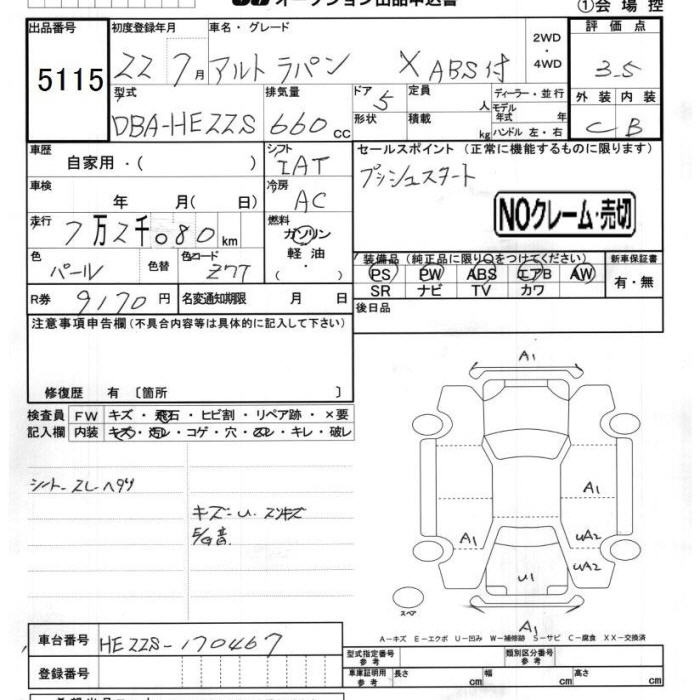 オークション出品申込書
①会場控
出品番号
初度登録年月
車名・グレード
2WD
・
4WD
評価点
5115
22 7月
アルト ラパン X ABS付
3.5
型式
排気量
ドア 5
定員
人
ディーラー・並行
モデル
年式 年
外装
内装
DBA-HE22S
660cc
形状
積載
kg
ハンドル 左・右
C
B
車歴
自家用・( )
シフト
IAT
セールスポイント (正常に機能するものに限ります)
プッシュスタート
車検
年 月( 日)
冷房
AC
NOクレーム・売切
走行
7万2千080km
燃料
ガソリン
軽油
( ・ )
色
パール
色替
色コード
Z7T
装備品 (純正品に限り○をつけてください)
新車保証書
PS PW ABS エアB AW
SR ナビ TV カワ
有・無
R券
9170円
名変通知期限
月 日
後日品
注意事項申告欄(不具合内容等は具体的に記入して下さい)
修復歴 有 〔箇所 〕
検査員
記入欄
FW
キズ・飛石・ヒビ割・リペア跡・×要
内装
キズ・汚レ・コゲ・穴・スレ・キレ・破レ
シート スレ ヘタリ
キズ・U・スリキズ
A1
A1
A1
UA2
UA2
U1
A1
スペア
A―キズ E―エクボ U―凹み W―補修跡 S―サビ C―腐食 XX―交換済
車台番号
HE22S-170467
登録番号
型式指定番号
参考
類別区分番号
参考
車庫証明用
参考
長さ cm
幅 cm
高さ cm